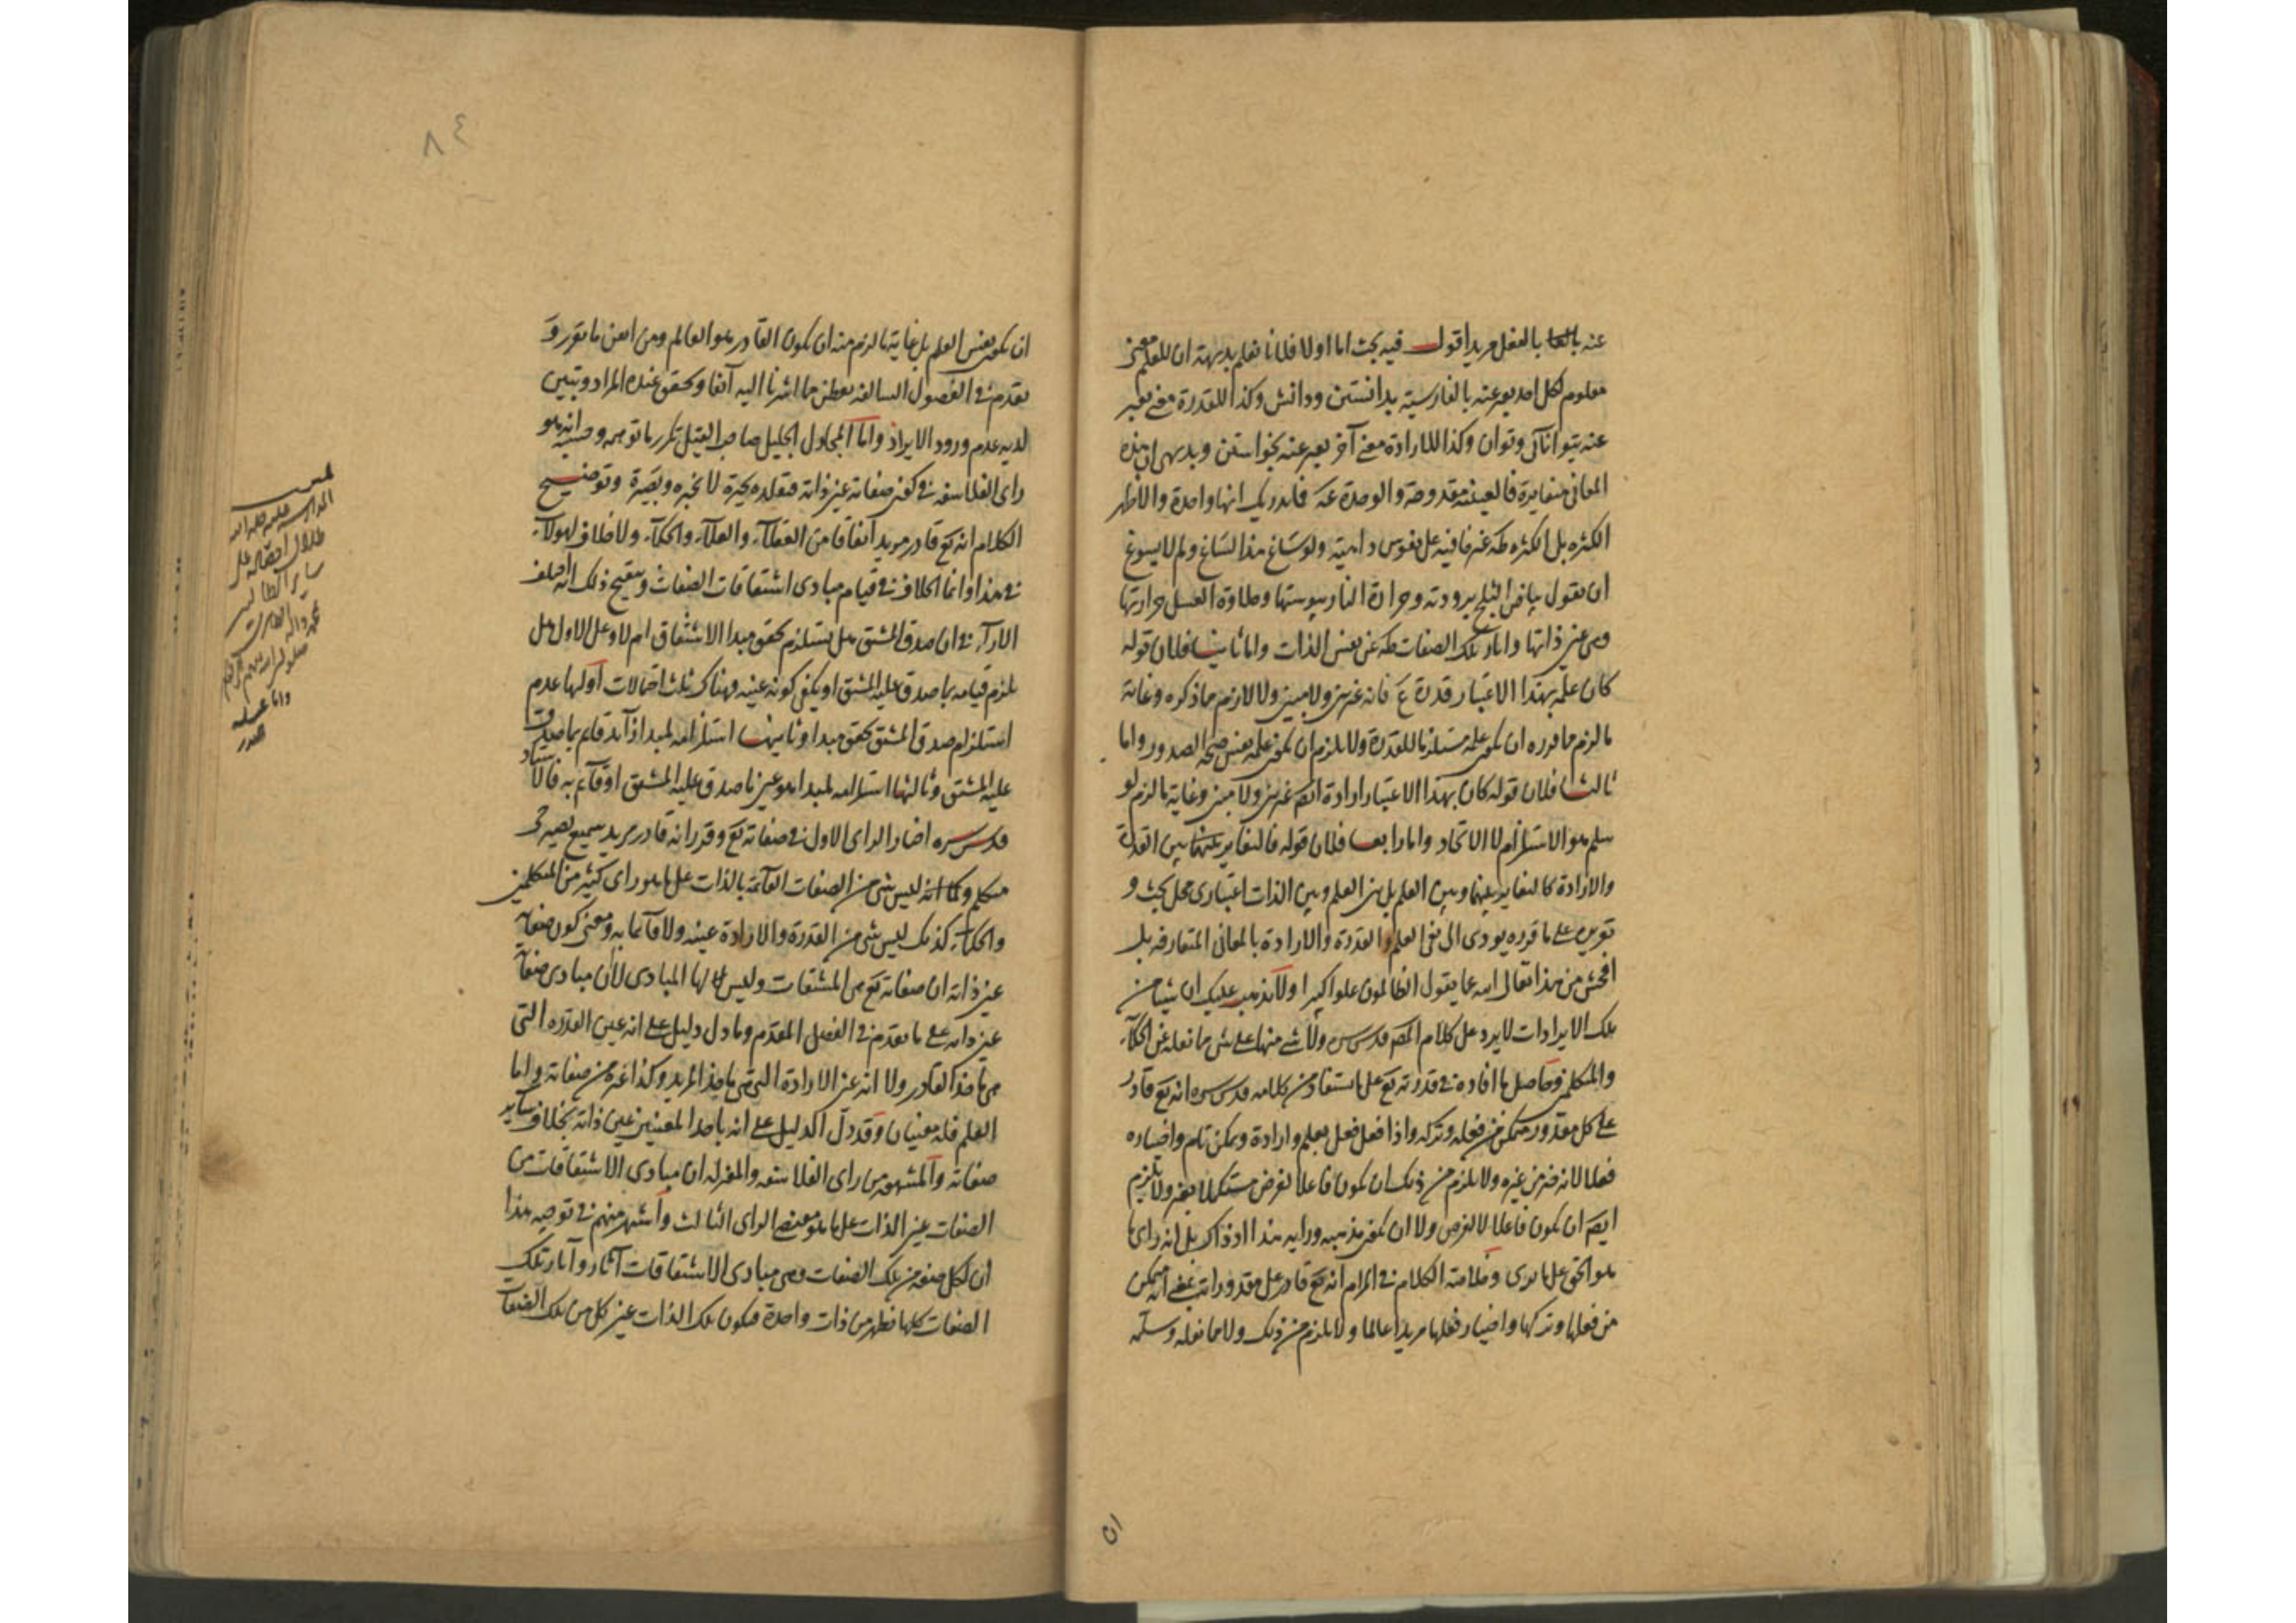 عنه بالفعل مريدا اقول فيه بحث اما اولا فلانا نعلم بديهة ان للعلم معنى
معلوم لكل احد يعبر عنه بالفارسية بدانستن ودانش وكذا للقدرة معنى يعبر
عنه بتوانائى وتوان وكذا للارادة معنى آخر يعبر عنه بخواستن وبديهى ان هذه
المعانى متغايرة فالعينية مقدوحة والوحدة فما يدريك انها واحدة والاظهر
الكثرة بل الكثرة
ان يقول بياض الثلج برودته وحرارة النار يبوستها وحلاوة العسل حرارتها
وهى عين ذاتها واثار تلك الصفات عن نفس الذات واما ثانيا فلان قوله
كان علمه بهذا الاعتبار قدرة فانه غير بين ولا مبين ولا لازم مما ذكره وغاية
ما لزم مما قرره ان يكون علمه مستلزما للقدرة ولا يلزم ان يكون علمه نفس صحة الصدور واما
ثالثا فلان قوله كان بهذا الاعتبار ارادة ايضا غير بين ولا مبين وغاية ما لزم لو
سلم هو الاستلزام لا الاتحاد واما رابعا فلان قوله فالتغاير بينهما بين القدرة
والارادة كالتغاير بينهما وبين العلم بل بين العلم وبين الذات اعتبارى محل بحث و
على ما قرره يودى الى نفى العلم والقدرة والارادة بالمعانى المتعارفة بل
افحش من هذا تعالى الله عما يقول الظالمون علوا كبيرا ولا يذهب عليك ان شيئا من
تلك الايرادات لا يرد على كلام المص قدس سره ولا شى منها على شى مما نقله عن الحكماء
والمتكلمين وحاصل ما افاده فى قدرته تع على ما يستفاد من كلامه قدس سره انه تع قادر
على كل مقدور متمكن من فعله وتركه واذا فعل فعل بعلم وارادة وتمكن تام واختياره
فعلا لانه خير من غيره ولا يلزم من ذلك ان يكون فاعلا لغرض مستكملا بغيره ولا يلزم
ايضا ان يكون فاعلا لا لغرض ولا ان يكون مذهبه ورايه هذا او ذاك بل انه راى ما
هو الحق على ما يرى وخلاصة الكلام فى المرام انه تع قادر على مقدوراته بمعنى انه متمكن
من فعلها وتركها واختيار فعلها مريدا عالما ولا يلزم من ذلك ولا مما نقله وسلمه
ان
٨٤
ان يكون نفس العلم بل غاية ما لزم منه ان يكون القادر هو العالم ومن امعن ما تقرر و
تقدم فى الفصول السالفة تفطن بما اشرنا اليه آنفا وتحقق عنده المراد وتبين
لديه عدم ورود الايراد واما المجادل الجليل صاحب القيل تكرر ما توهمه وحسبه انه هو
راى الفلاسفة فى كون صفاته عين ذاته فتقلده بحيرة لا بخبره وبصيرة وتوضيح
الكلام انه تع قادر مريد اتفاقا من العقلاء والعلماء والحكماء ولا خلاف لهولاء
فى هذا وانما الخلاف فى قيام مبادى اشتقاقات الصفات وتنقيح ذلك انه اختلف
الاراء فى ان صدق المشتق هل يستلزم تحقق مبدا الاشتقاق ام لا وعلى الاول هل
يلزم قيامه بما صدق عليه المشتق او يكفى كونه عينه وهناك ثلث احتمالات اولها عدم
استلزام صدق المشتق تحقق مبدا وثانيها استلزامه لمبدا زايد قائم بما صدق
عليه المشتق وثالثها استلزامه لمبدا هو عين ما صدق عليه المشتق او قائم به فالاستاد
قدس سره اختار الراى الاول فى صفاته تع وقرر انه قادر مريد سميع بصير حى
متكلم وكما انه ليس شى من الصفات القائمة بالذات على ما هو راى كثير من المتكلمين
والحكماء كذلك ليس شى من القدرة والارادة عينه ولا قائما به ومعنى كون صفاته
عين ذاته ان صفاته تع هى المشتقات وليس لها المبادى لان مبادى صفاته
عين ذاته على ما تقدم فى الفصل المقدم وما دل دليل على انه عين القدرة التى
هى ماخذ القادر ولا انه عين الارادة التى هى ماخذ المريد وكذا غيره من صفاته واما
العلم فله معنيان وقد دل الدليل على انه باحد المعنيين عين ذاته بخلاف ساير
صفاته والمشهور من راى الفلاسفة والمعتزلة ان مبادى الاشتقاقات من
الصفات عين الذات على ما هو مقتضى الراى الثالث واشتهر منهم فى توجيه هذا
ان لكل صفة من تلك الصفات وهى مبادى الاشتقاقات آثار وآثار تلك
الصفات كلها تظهر من ذات واحدة فيكون تلك الذات عين كل من تلك الصفات